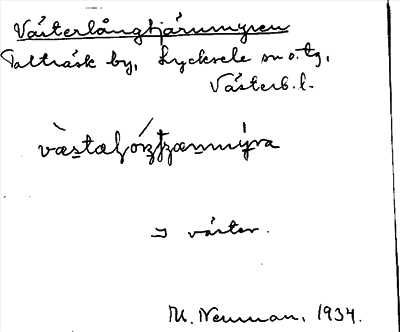 Västerlångtjärnmyren
Talträsk by, Lycksele sn o. tg,
Västerb. l.
i väster.
M. Neuman, 1934.